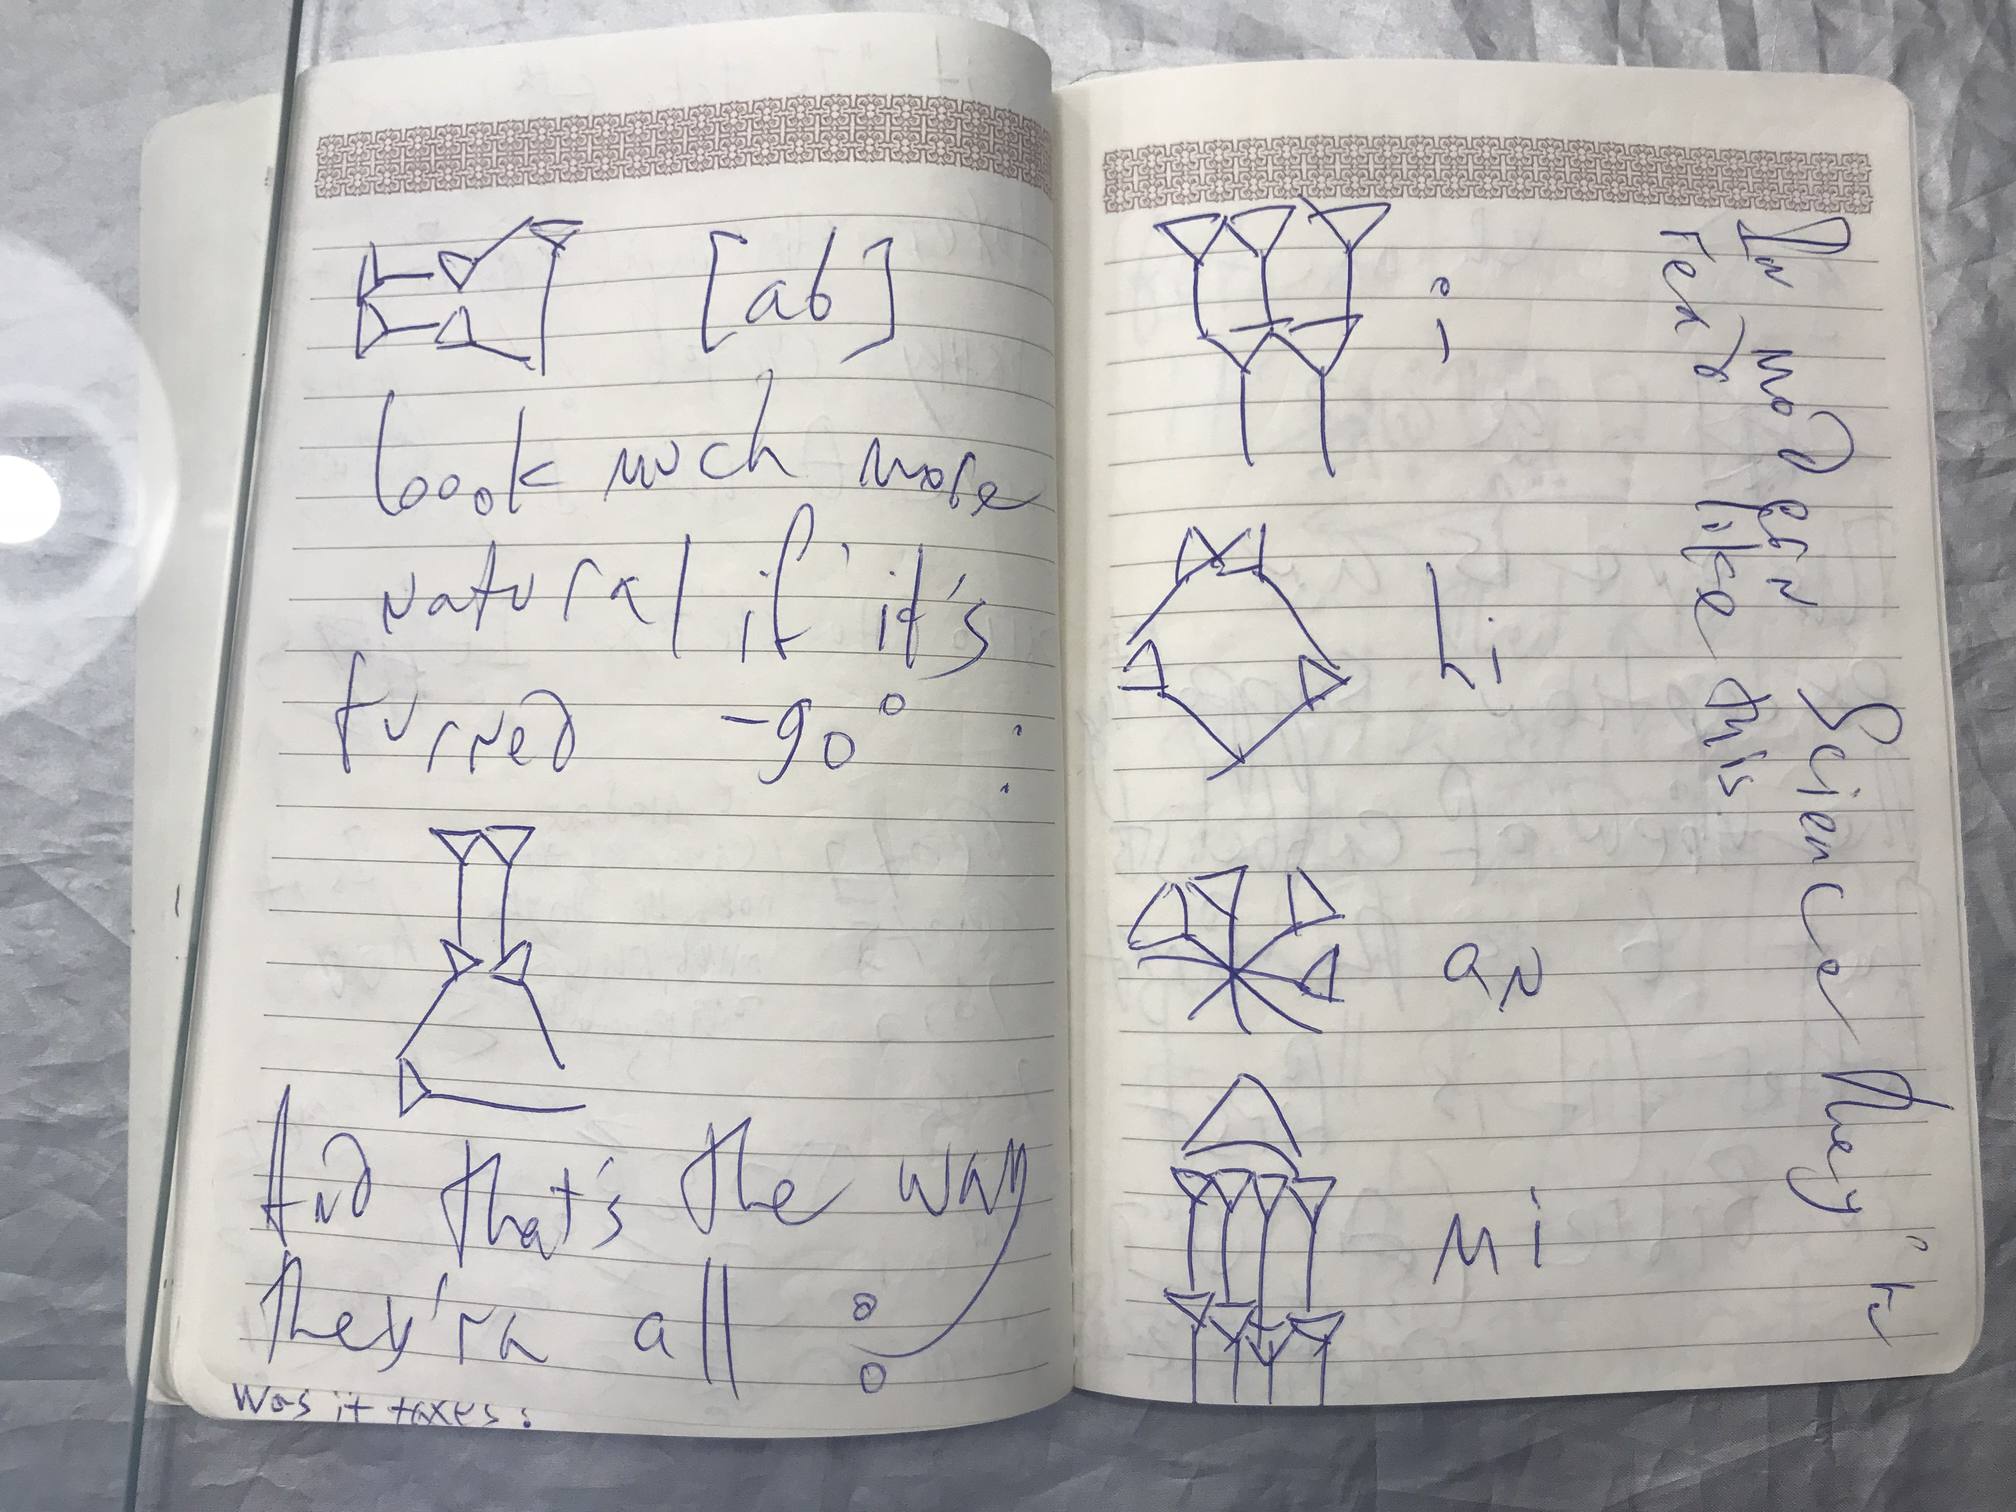 [ab]
look much more
natural if it's
turned -90° :
And that's the way
they'ra all :
Was it taxes:
i
hi
an
mi
In modern Science they're
like this